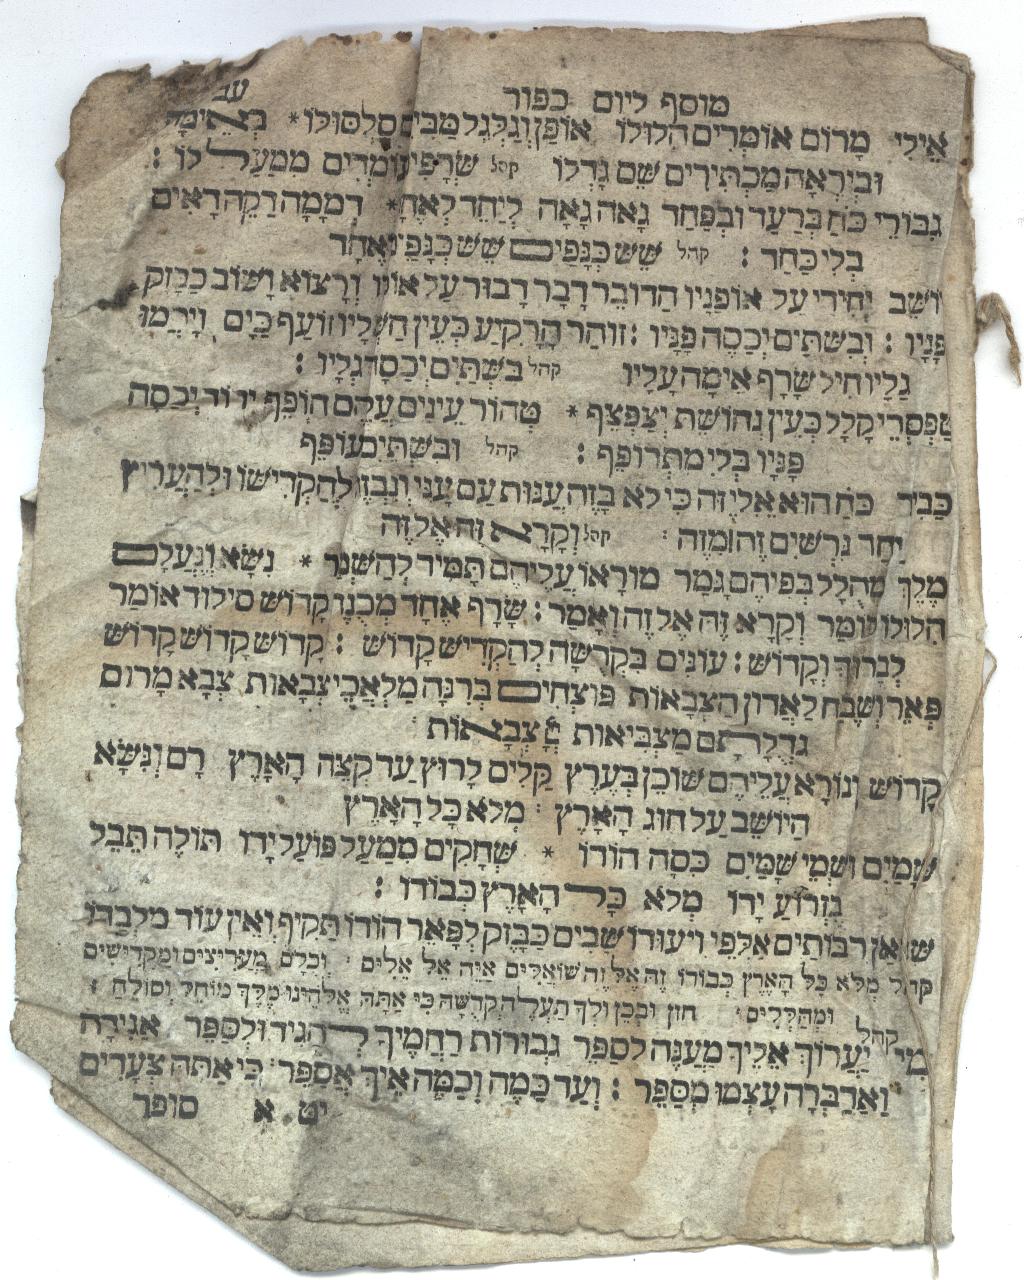 מוסף ליום כפור עב
אֵילֵי מָרוֹם אוֹמְרִים הִלּוּלוֹ אוֹפַן וְגַלְגַּל מַבִּים סִלְסוּלוֹ * בְּאֵימָה
וּבְיִרְאָה מַכְתִּירִים שֵׁם גָּדְלוֹ קהל שְׂרָפִים עוֹמְדִים מִמַּעַל לוֹ :
גִּבּוֹרֵי כֹחַ בְּרַעַד וּבְפַחַד גֵּאֶה גָאָה לְיַחֵד לְאֶחָד * דְּמָמָה דַקָּה דָאִים
בְּלִי כַּחַד : קהל שֵׁשׁ כְּנָפַיִם שֵׁשׁ כְּנָפַיִם לְאֶחָד
יוֹשֵׁב יְחִידִי עַל אוֹפַנָּיו הַדּוֹבֵר דָּבָר דָּבוּר עַל וְרָצוֹא וָשׁוֹב כַּבָּזָק
פָּנָיו : וּבִשְׁתַּיִם יְכַסֶּה פָּנָיו : זוֹהַר הָרָקִיעַ כְּעֵין וְזוֹעֵף כַּיָּם
גַּלָּיו חִיל שָׂרָף אֵימָה עָלָיו קהל בִּשְׁתַּיִם יְכַסֶּה רַגְלָיו :
טַפְסְרֵי קָלָל כְּעֵין נְחוֹשֶׁת יְצַפְצֵף * טְהוֹר עֵינַיִם יְכַסֶּה
פָּנָיו בְּלִי מִתְרוֹפֵף : קהל וּבִשְׁתַּיִם יְעוֹפֵף
כַּבִּיר כֹּחַ הוּא אֵלִי זֶה כִּי לֹא בָזָה עֱנוּת עַם עָנִי וְנִבְזֶה לְהַקְדִּישׁוֹ וּלְהַעֲרִיץ
יַחַד נִגָּשִׁים זֶה וּמִזֶּה : קהל וְקָרָא זֶה אֶל זֶה
מֶלֶךְ מְהֻלָּל בְּפִיהֶם גָּמַר מוֹרָאוֹ עֲלֵיהֶם תָּמִיד לְהִשָּׁמֵר * נִשָּׂא וְנֶעְלָם
הִלּוּלוֹ לוֹמַר וְקָרָא זֶה אֶל זֶה וְאָמַר : שָׂרָף אֶחָד מִכְּנוֹ קָדוֹשׁ סִילּוּד אוֹמַר
לְבָרוּךְ וְקָדוֹשׁ : עוֹנִים בִּקְדֻשָּׁה לְהַקְדִּישׁ קָדוֹשׁ : קָדוֹשׁ קָדוֹשׁ קָדוֹשׁ
פְּאֵר וְשֶׁבַח לַאֲדוֹן הַצְּבָאוֹת פּוֹצְחִים בְּרִנָּה מַלְאֲכֵי צְבָאוֹת צְבָא מָרוֹם
גְּדֻלָּתָם מַצְבִּיאוֹת צְבָאוֹת
קָדוֹשׁ וְנוֹרָא עֲלֵיהֶם שׁוֹכֵן בְּעֶרֶץ קַלִּים לָרוּץ עַד קְצֵה הָאָרֶץ רָם וְנִשָּׂא
הַיּוֹשֵׁב עַל חוּג הָאָרֶץ : מְלֹא כָל הָאָרֶץ
שָׁמַיִם וּשְׁמֵי שָׁמַיִם כִּסָּה הוֹדוֹ * שְׁחָקִים מִמַּעַל פּוֹעַל יָדוֹ תּוֹלֶה תֵּבֵל
בִּזְרוֹעַ יָדוֹ מְלֹא כָל הָאָרֶץ כְּבוֹדוֹ :
שִׁנְאַן רִבּוֹתַיִם אַלְפֵי וִיעוּדוֹ שָׁבִים כַּבָּזָק לְפָאֵר הוֹדוֹ תַּקִּיף וְאֵין עוֹד מִלְבַדּוֹ
קהל מְלֹא כָל הָאָרֶץ כְּבוֹדוֹ זֶה אֶל זֶה שׁוֹאֲלִים אַיֵּה אֵל אֵלִים : וְכֻלָּם מַעֲרִיצִים וּמַקְדִּישִׁים
וּמְהַלְלִים : חזן וּבְכֵן וּלְךָ תַעֲלֶה קְדֻשָּׁה כִּי אַתָּה אֱלֹהֵינוּ מֶלֶךְ מוֹחֵל וְסוֹלֵחַ :
קהל מִי יַעֲרוֹךְ אֵלֶיךָ מַעֲנֶה לְסַפֵּר גְּבוּרוֹת רַחֲמֶיךָ לְהַגִּיד וּלְסַפֵּר אַגִּידָה
וַאֲדַבְּרָה עָצְמוּ מִסַּפֵּר : וְעַד כַּמֶּה וְכַמָּה אֵיךְ אֲסַפֵּר : כִּי אַתָּה צְעָדִים
יט א סופר